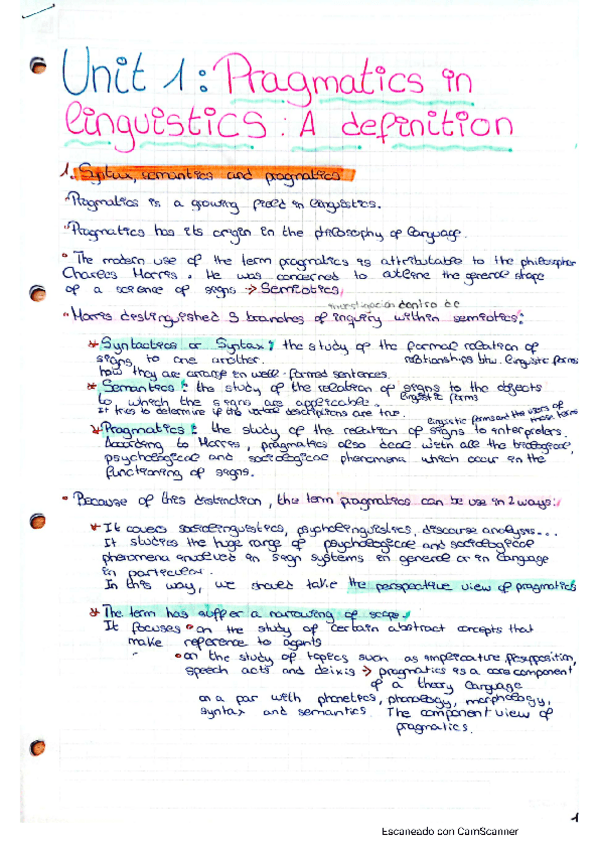 Unit 1: Pragmatics in
linguistics: A definition
1. Syntax, semantics and pragmatics
Pragmatics is a growing field in linguistics.
Pragmatics has its origin in the philosophy of language.
The modern use of the term pragmatics is attributable to the philosopher
Charles Morris. He was concerned to outline the general shape
of a science of signs → Semiotics
investigación dentro de
Morris distinguished 3 branches of inquiry within semiotics:
Syntactics or Syntax: the study of the formal relation of
signs to one another. relationships btw. linguistic forms
how they are arrange in well-formed sentences.
Semantics: the study of the relation of signs to the objects
to which the signs are applicable. linguistic forms
It tries to determine if the verbal descriptions are true.
linguistic forms and the users of these forms
Pragmatics: the study of the relation of signs to interpreters.
According to Morris, pragmatics also deal with all the biological,
psychological and sociological phenomena which occur in the
functioning of signs.
Because of this distinction, the term pragmatics can be use in 2 ways:
It covers sociolinguistics, psycholinguistics, discourse analysis...
It studies the huge range of psychological and sociological
phenomena involved in sign systems in general or in language
in particular.
In this way, we should take the perspective view of pragmatics
The term has suffer a narrowing of scope.
It focuses on the study of certain abstract concepts that
make reference to agents
on the study of topics such as implicature, presupposition,
speech acts and deixis → pragmatics as a core component
of a theory language
on a par with phonetics, phonology, morphology,
syntax and semantics. The component view of
pragmatics.
1
Escaneado con CamScanner